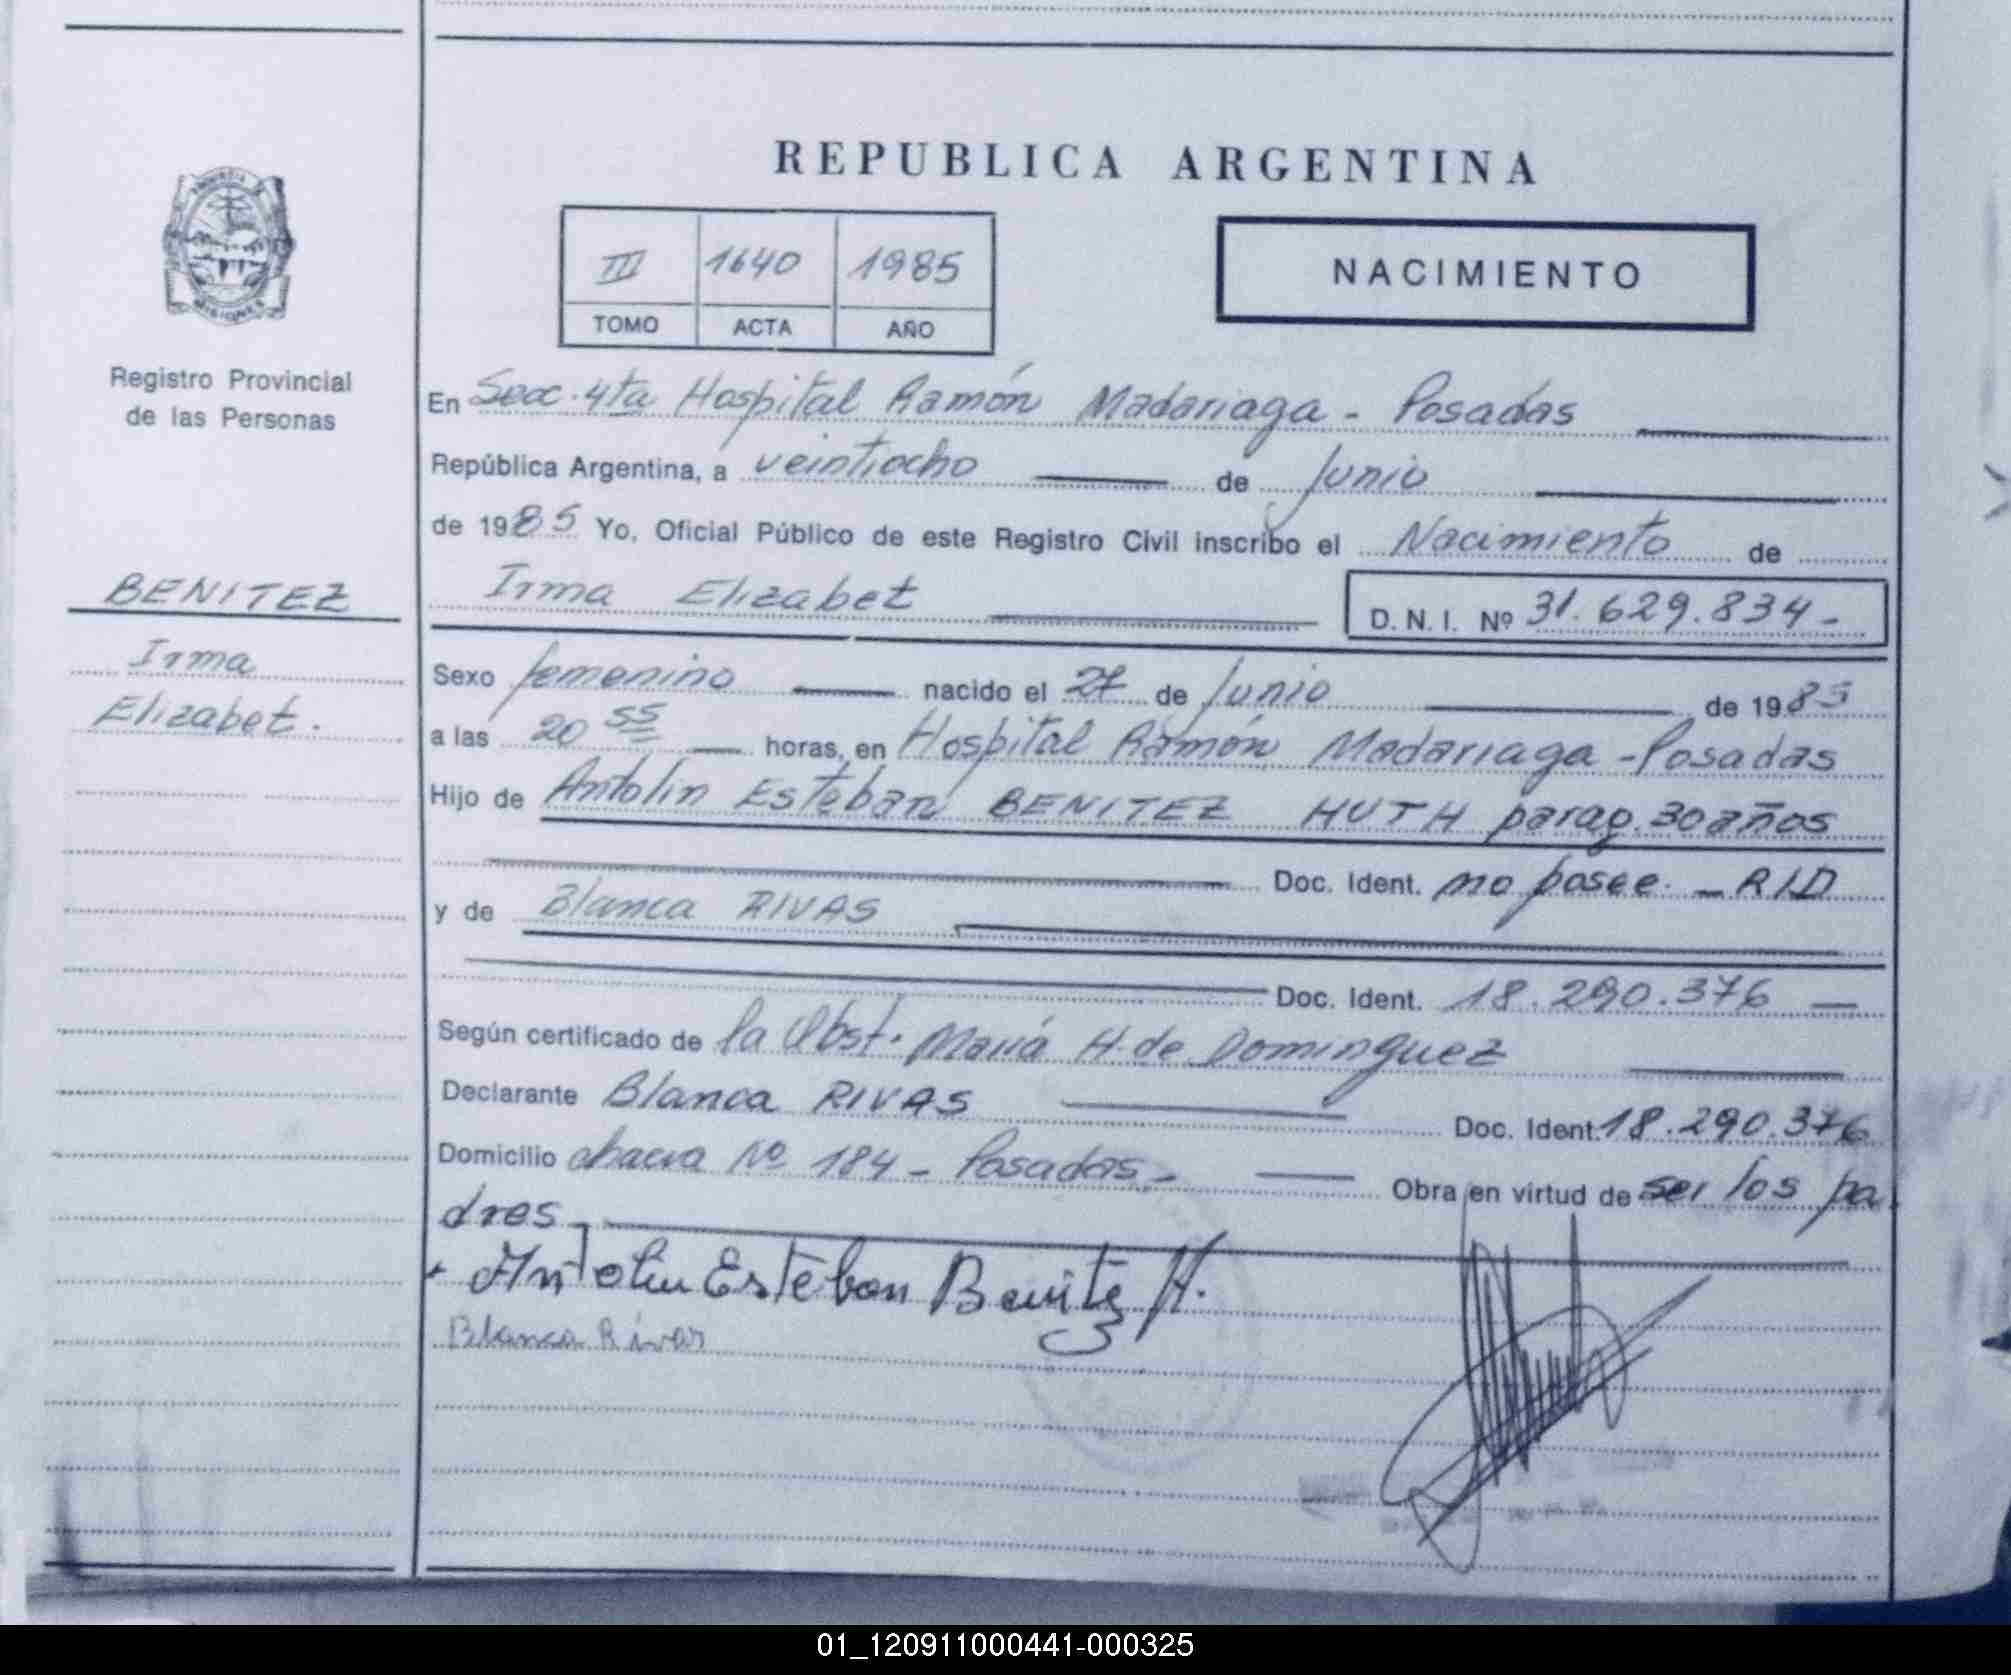 REPUBLICA ARGENTINA
III 1640 1985
TOMO ACTA AÑO
NACIMIENTO
PROVINCIA DE
MISIONES
Registro Provincial
de las Personas
BENITEZ
Irma
Elizabet.
En Secc. 4ta Hospital Ramón Madariaga - Posadas
República Argentina, a veintiocho de Junio
de 1985 Yo, Oficial Público de este Registro Civil inscribo el Nacimiento de
Irma Elizabet D. N. I. Nº 31.629.834-
Sexo femenino nacido el 27 de Junio de 1985
a las 20 55 horas, en Hospital Ramón Madariaga - Posadas
Hijo de Antolin Esteban BENITEZ HUTH parag. 30 años
Doc. Ident. no posee. - RID
y de Blanca RIVAS
Doc. Ident. 18.290.376 -
Según certificado de la Obst. María H. de Dominguez
Declarante Blanca RIVAS Doc. Ident. 18.290.376
Domicilio chacra Nº 184 - Posadas.- Obra en virtud de ser los pa-
dres.-
Antolin Esteban Benitez H.
Blanca Rivas
01_120911000441-000325